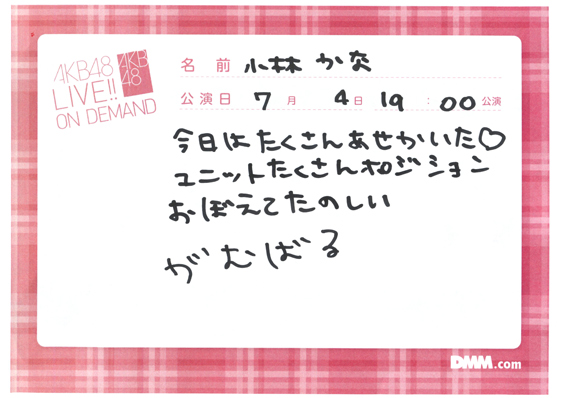 AKB48
LIVE!!
ON DEMAND
AKB
48
名 前 小林 か奈
公演日 7月 4日 19:00公演
今日はたくさんあせかいた♡
ユニットたくさんポジション
おぼえてたのしい
がむばる
DMM.com